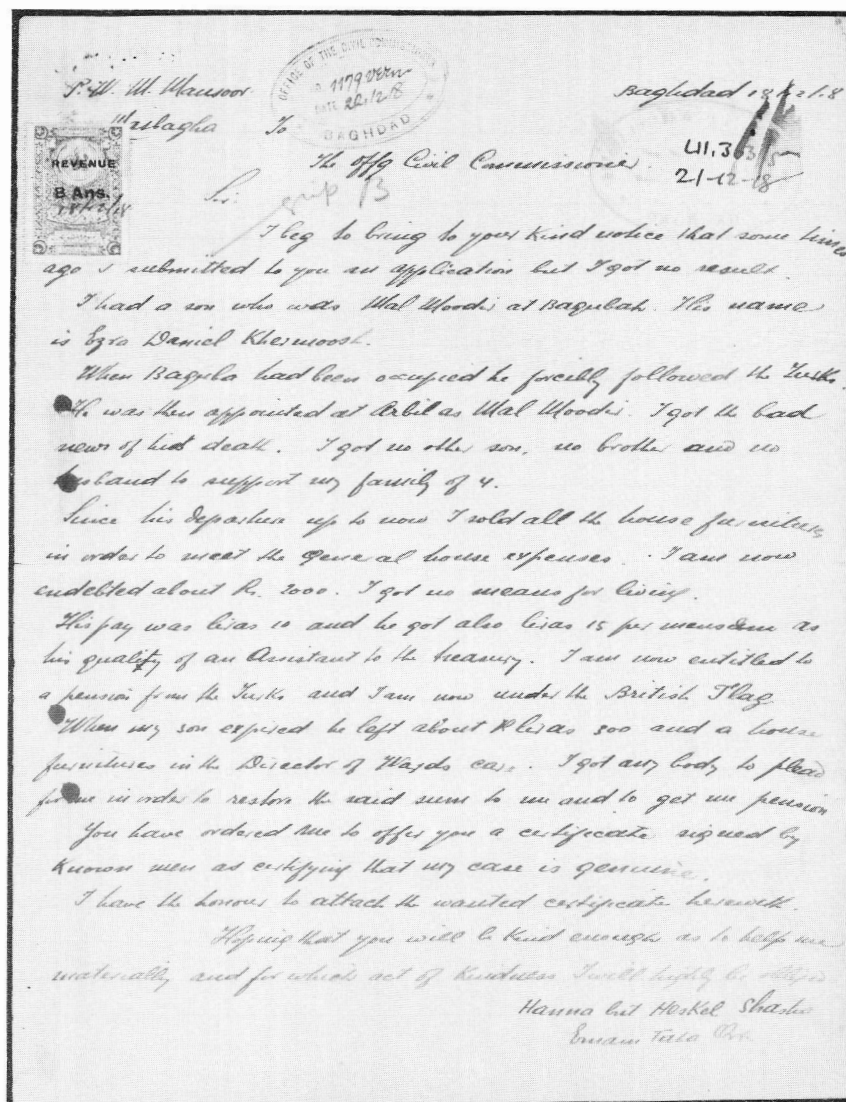 P. W. M. Mansoor
Maslagha
OFFICE OF THE CIVIL COMMISSIONER
1179 VERN
DATE 20/12/8
BAGHDAD
Baghdad 18/12/18
To
The Offg Civil Commissioner.
21-12-18
REVENUE
8 Ans.
18/12/18
Sir:
I beg to bring to your kind notice that some times
ago I submitted to you an application but I got no result.
I had a son who was Mal Moodir at Baqubah. His name
is Ezra Daniel Khermoosh.
When Baquba had been occupied he forcibly followed the Turks.
He was then appointed at Arbil as Mal Moodir. I got the bad
news of his death. I got no other son, no brother and no
husband to support my family of 4.
Since his departure up to now I sold all the house furnitures
in order to meet the general house expenses. I am now
endebted about Rs. 2000. I got no means for living.
His pay was liras 10 and he got also liras 15 per mensem as
his quality of an Assistant to the treasury. I am now entitled to
a pension from the Turks and I am now under the British Flag
When my son expired he left about liras 300 and a house
furnitures in the Director of Wayds care. I got any body to plead
for me in order to restore the said sum to me and to get me pension
You have ordered me to offer you a certificate signed by
Known men as certifying that my case is genuine.
I have the honour to attach the wanted certificate herewith.
Hoping that you will be kind enough as to help me
materially and for which act of kindness I will highly be obliged
Hanna bit Heskel Shasha